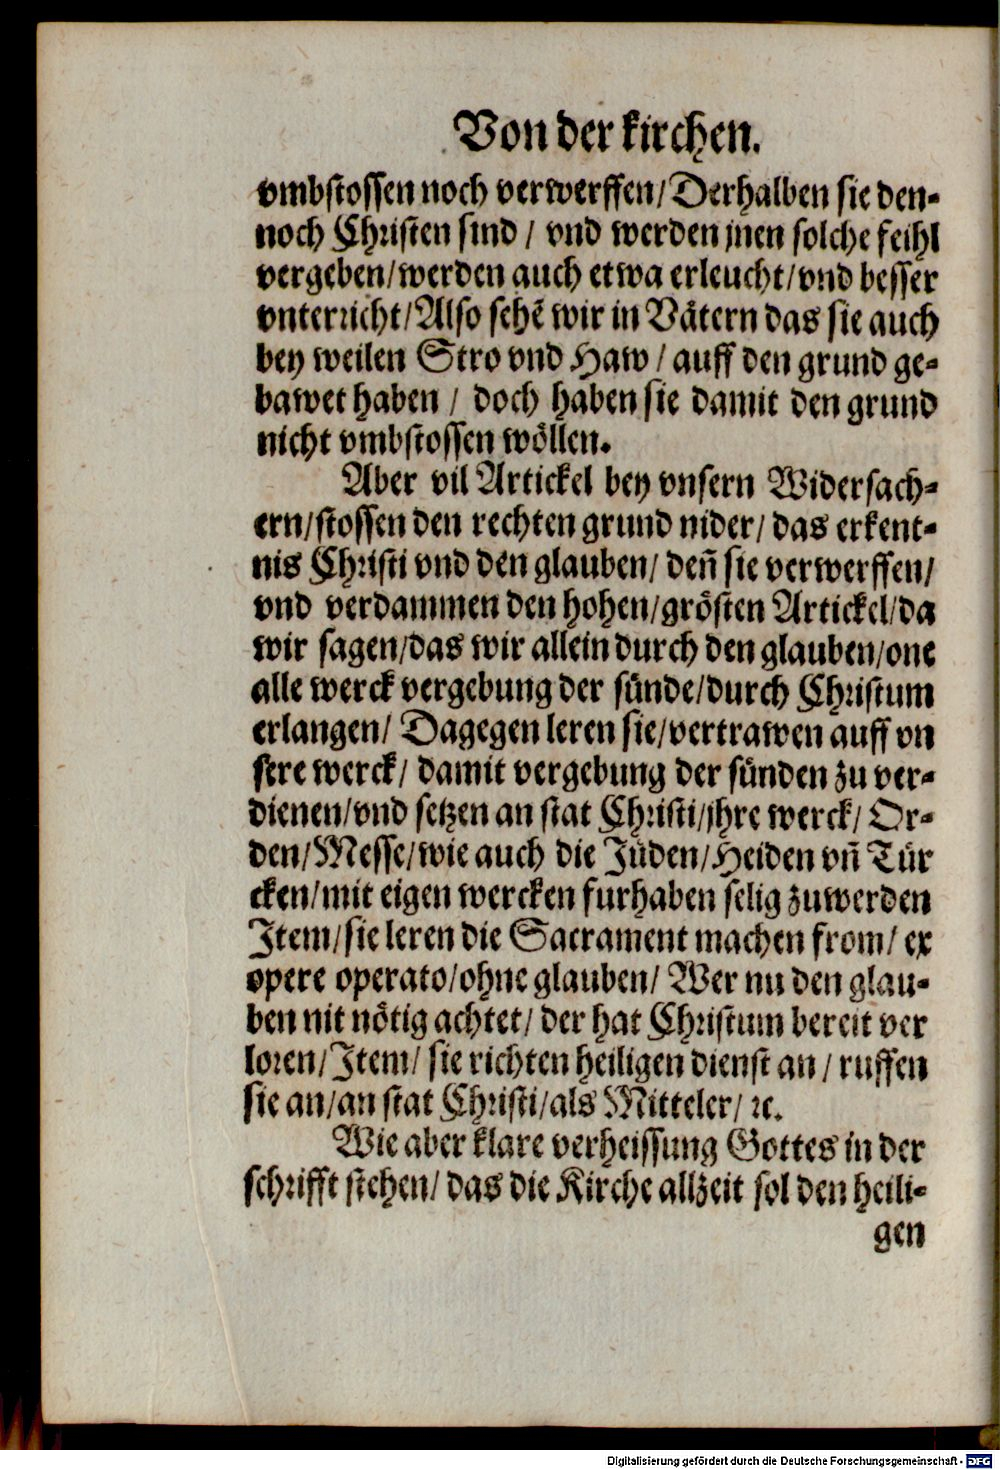 Von der kirchen.
vmbstossen noch verwerffen/ Derhalben sie den-
noch Christen sind / vnd werden jnen solche feihl
vergeben/werden auch etwa erleucht/vnd besser
vnterricht/Also sehē wir in Vätern das sie auch
bey weilen Stro vnd Haw / auff den grund ge-
bawet haben / doch haben sie damit den grund
nicht vmbstossen wöllen.
Aber vil Artickel bey vnsern Widersach-
ern/stossen den rechten grund nider/ das erkent-
nis Christi vnd den glauben/ deñ sie verwerffen/
vnd verdammen den hohen/grösten Artickel/da
wir sagen/das wir allein durch den glauben/one
alle werck vergebung der sünde/durch Christum
erlangen/ Dagegen leren sie/vertrawen auff vn
sere werck/ damit vergebung der sünden zu ver-
dienen/vnd setzen an stat Christi/jhre werck/ Or-
den/Messe/wie auch die Jüden/Heiden vñ Tür
cken/mit eigen wercken furhaben selig zuwerden
Item/sie leren die Sacrament machen from/ ex
opere operato/ohne glauben/ Wer nu den glau-
ben nit nötig achtet/ der hat Christum bereit ver
loren/Item/ sie richten heiligen dienst an / ruffen
sie an/an stat Christi/als Mitteler/ ꝛc.
Wie aber klare verheissung Gottes in der
schrifft stehen/ das die Kirche allzeit sol den heili-
gen
Digitalisierung gefördert durch die Deutsche Forschungsgemeinschaft - DFG